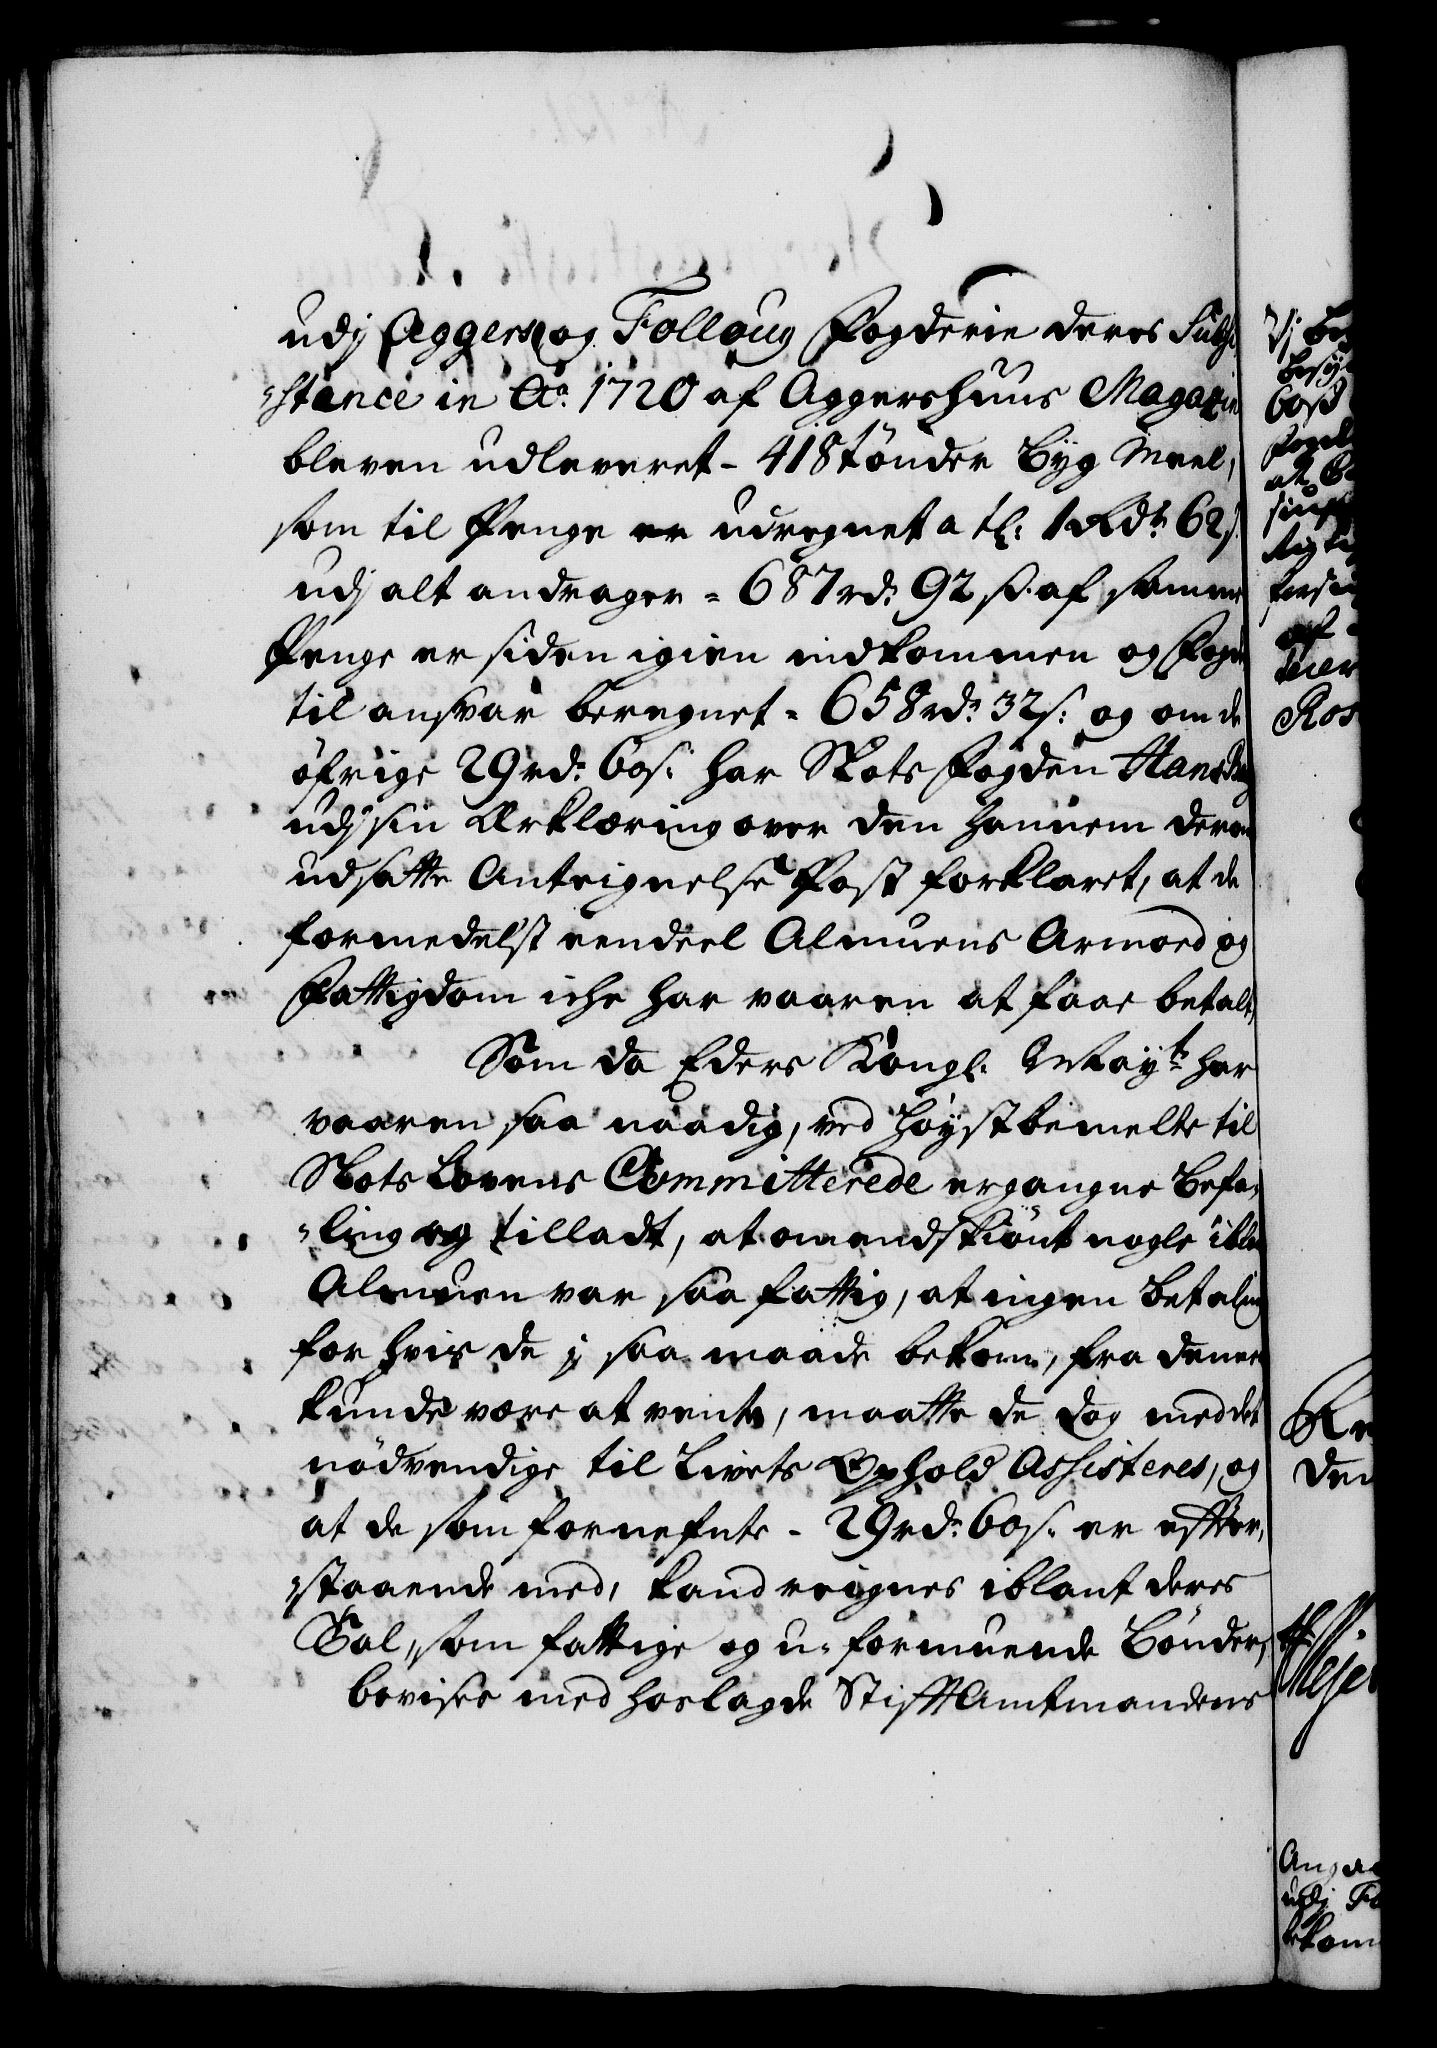 udj Aggers og Folloug Fogderie deres Subsi
"stance in Ao. 1720 af Aggershuus Magazin
bleven udleveret - 418 tönder Byg Meel,
som til Penge er udregnet a tl: 1 Rdr. 62 s.
udj alt andrager = 687 rd. 92 s. af samme
Penge er siden igien indkommen og Fogden
til ansvar beregnet = 658 rd. 32 s: og om de
öfrige 29 rd. 60 s: har Slots Fogden Hans
udj sin Erklæring over den hannem derom
udsatte Anteignelse Post forklaret, at de
formedelst eendeel Almuens Armoed og
Fattigdom iche har vaaren at faae betalt,
Som da Eders Kongl. Mayt. har
vaaren saa naadig, ved höystbemelte til
Slots Lovens Committerede ergangne Befa-
"ling og tilladt, at omendskiönt nogle iblt
Almuen var saa fattig, at ingen Betaling
for hvis de j saa maade bekom, fra dennem
kunde være at vente, maatte de dog med det
nödvendige til Livets Ophold Assisteres, og
at de som fornefnte - 29 rd. 60 s. er effter,
"staaende med, kand reignes iblant deres
Tal, som fattige og u-formuende Bönder,
bevises med hoslagde StifftAmtmandens